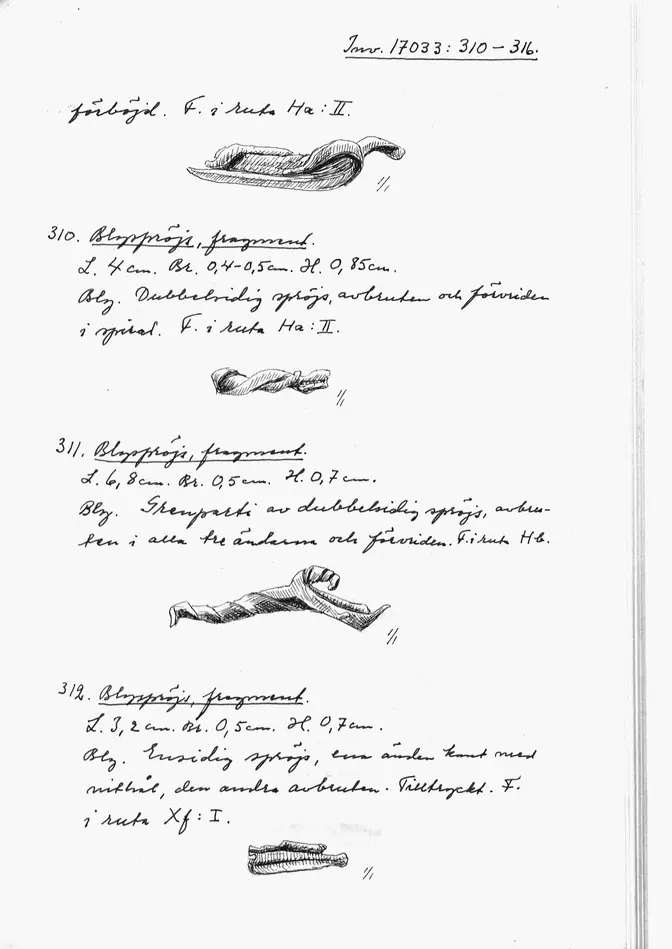 Inv. 17033: 310 – 316.
förböjd. F. i ruta Ha : II.
1/1
310. Blyspröjs, fragment.
L. 4 cm. Br. 0,4–0,5 cm. H. 0,85 cm.
Bly. Dubbelsidig spröjs, avbruten och förvriden
i spiral. F. i ruta Ha : II.
1/1
311. Blyspröjs, fragment.
L. 6,8 cm. Br. 0,5 cm. H. 0,7 cm.
Bly. Grenparti av dubbelsidig spröjs, avbru-
ten i alla tre ändarna och förvriden. F. i ruta Hb.
1/1
312. Blyspröjs, fragment.
L. 3,2 cm. Br. 0,5 cm. H. 0,7 cm.
Bly. Ensidig spröjs, ena änden kant med
nithål, den andra avbruten. Tilltryckt. F.
i ruta Xf : I.
1/1